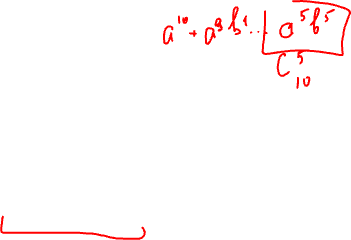 a¹⁰ + a⁹b¹ ... a⁵b⁵
C⁵₁₀